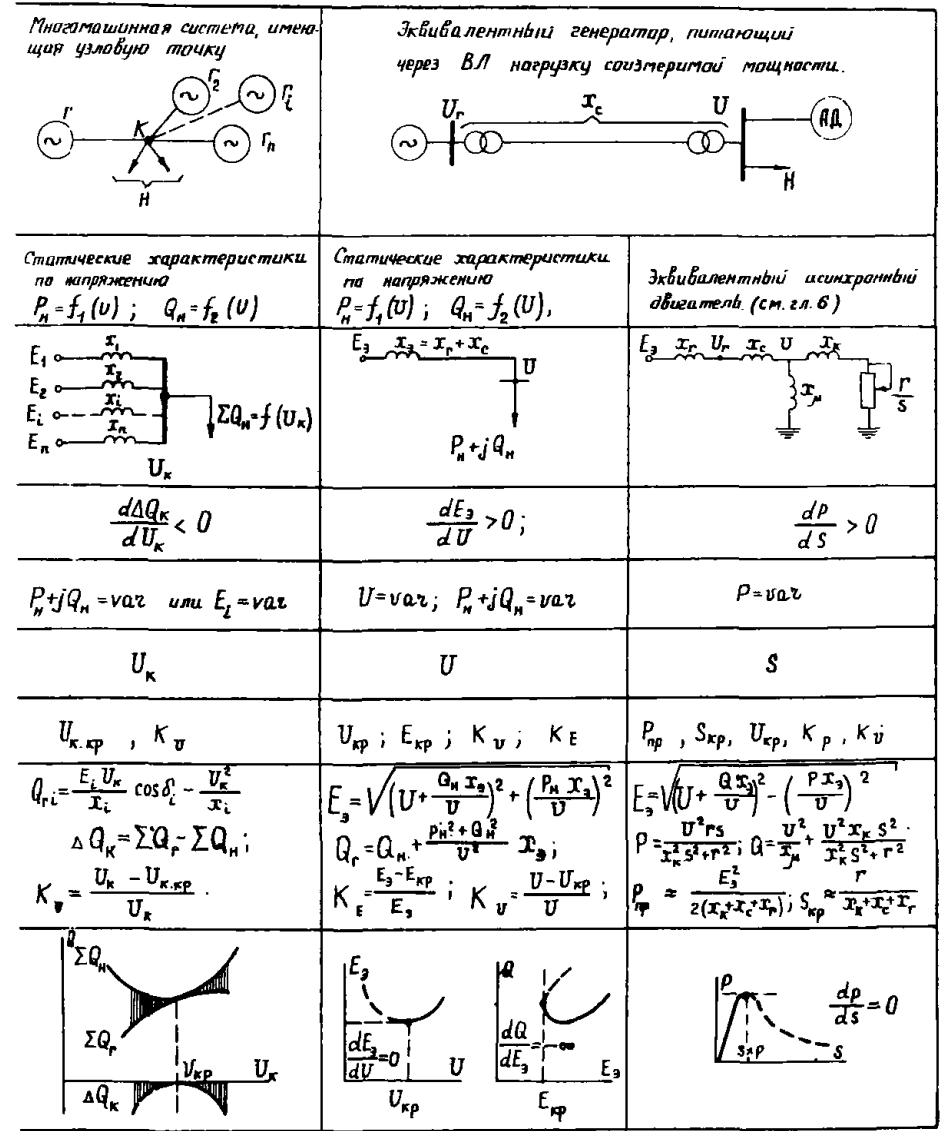 Многомашинная система, имею-
щая узловую точку
Г
K
Г₂
Г_i
Г_n
H
Эквивалентный генератор, питающий
через ВЛ нагрузку соизмеримой мощности.
U_г
x_c
U
АД
H
Статические характеристики
по напряжению
P_н = f₁(U) ; Q_н = f₂(U)
Статические характеристики
по напряжению
P_н = f₁(U) ; Q_н = f₂(U),
Эквивалентный асинхронный
двигатель. (см. гл. 6)
E₁ x₁
E₂ x₂
E_i x_i
E_n x_n
ΣQ_н = f(U_к)
U_к
E_э x_э = x_г + x_c
U
P_н + jQ_н
E_э x_г U_г x_c U x_к
x_μ
r/s
dΔQ_к/dU_к < 0
dE_э/dU > 0 ;
dP/dS > 0
P_н + jQ_н = var или E_i = var
U = var; P_н + jQ_н = var
P = var
U_к
U
S
U_к.кр , K_U
U_кр ; E_кр ; K_U ; K_E
P_пр , S_кр, U_кр, K_P, K_U
Q_гi = E_i U_к/x_i cos δ_i − U_к²/x_i
ΔQ_к = ΣQ_г − ΣQ_н ;
K_U = (U_к − U_к.кр)/U_к .
E_э = √((U + Q_н x_э/U)² + (P_н x_э/U)²)
Q_г = Q_н + (P_н² + Q_н²)/U² x_э ;
K_E = (E_э − E_кр)/E_э ; K_U = (U − U_кр)/U ;
E_э = √((U + Q x_э/U)² − (P x_э/U)²)
P = U² r s/(x_к² s² + r²) ; Q = U²/x_μ + U² x_к s²/(x_к² s² + r²) .
P_пр ≈ E_э²/2(x_к + x_c + x_г) ; S_кр ≈ r/(x_к + x_c + x_г)
Q
ΣQ_н
ΣQ_г
U_кр
U_к
ΔQ_к
E_э
dE_э/dU = 0
U
U_кр
Q
dQ/dE_э = −∞
E_э
E_кр
P
dp/ds = 0
sкр
S